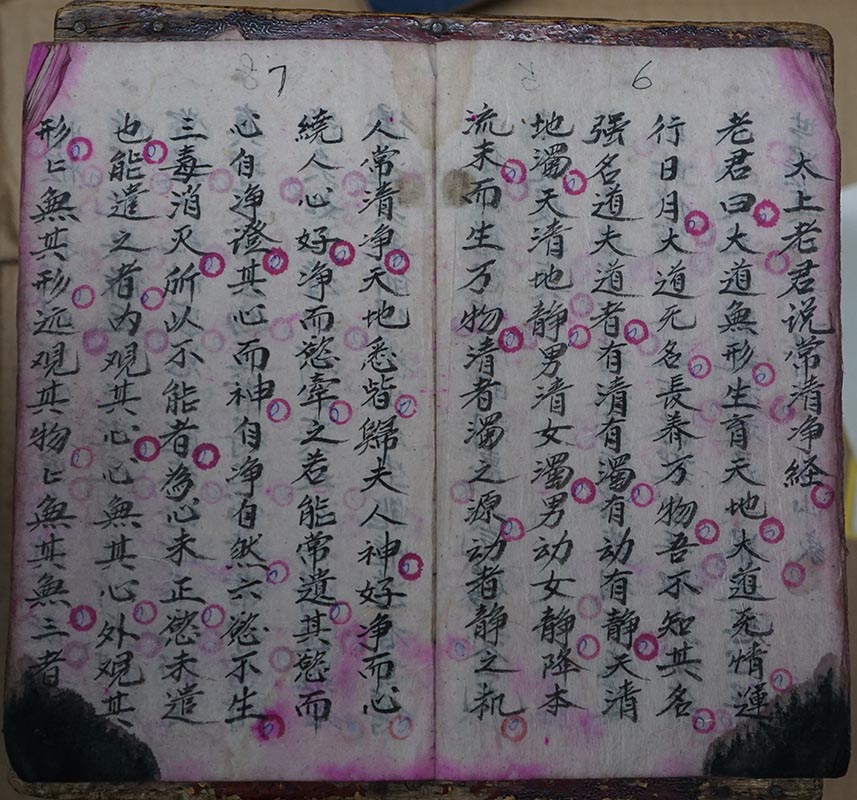 6
太上老君说常清净経
老君曰大道無形生育天地大道无情運
行日月大道无名長养万物吾不知其名
强名道夫道者有清有濁有动有静天清
地濁天清地静男清女濁男动女静降本
流末而生万物清者濁之源动者静之机
7
人常清净天地悉皆歸夫人神好净而心
繞人心好净而慾牽之若能常遺其慾而
心自净證其心而神自净自然六慾不生
三毒消灭所以不能者為心未正慾未遣
也能遣之者内观其心心無其心外观其
形匕無其形远观其物匕無其無三者